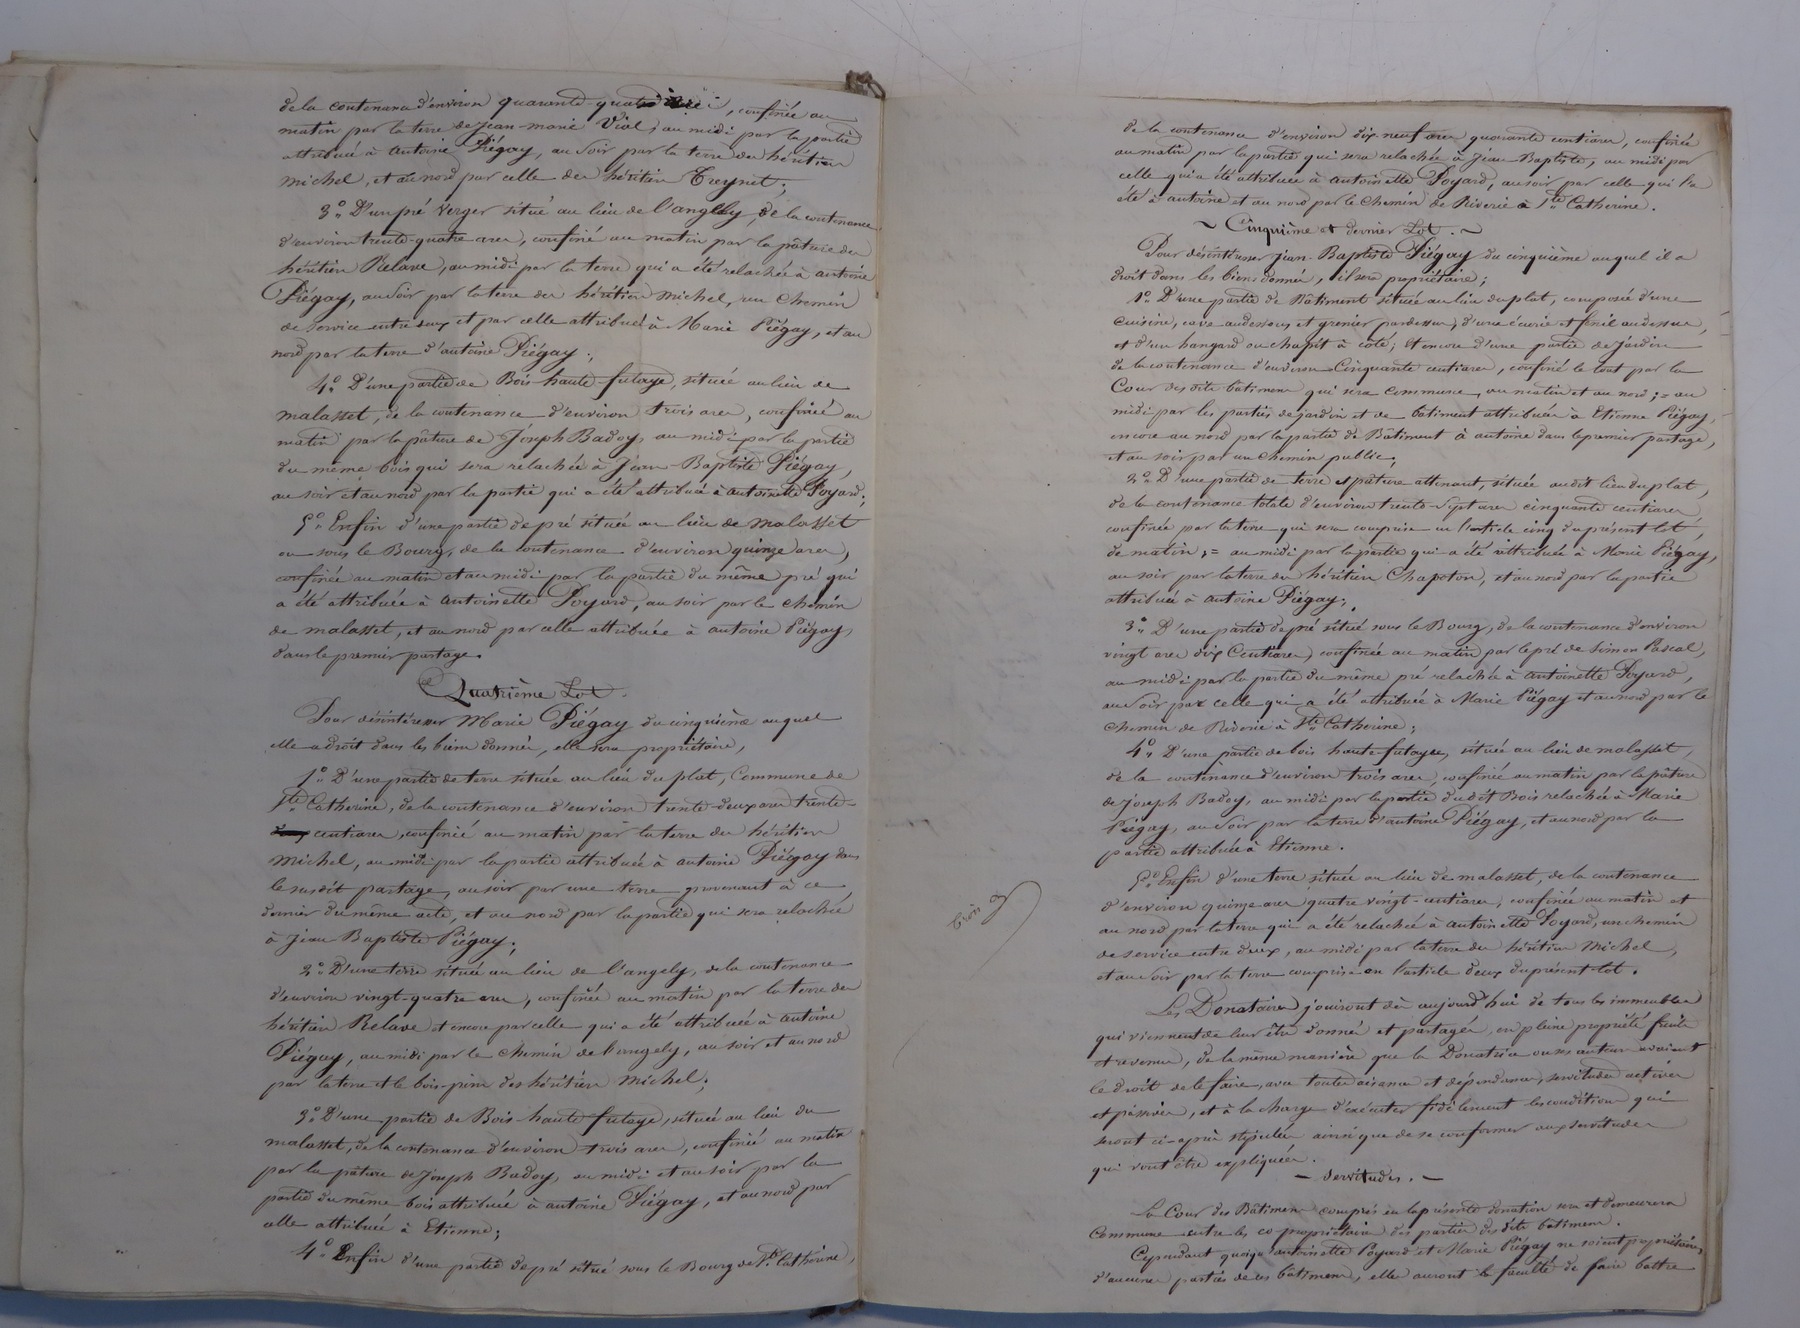 de la contenance d'environ quarante-quatre ares, confinée au
matin par la terre de Jean-Marie Viol, au midi par la partie
attribuée à antoine Piégay, au soir par la terre des héritiers
Michel, et au nord par celle des héritiers Creynet;
3° D'un pré verger situé au lieu de l'angely, de la contenance
d'environ trente-quatre ares, confiné au matin par la pâture des
héritiers Relave, au midi par la terre qui a été relachée à antoine
Piégay, au soir par la terre des héritiers Michel, un chemin
de service entre deux et par celle attribuée à Marie Piégay, et au
nord par la terre d'antoine Piégay;
4° D'une partie de Bois haute-futaye, située au lieu de
malasset, de la contenance d'environ trois ares, confinée au
matin par la pâture de Joseph Badoy, au midi par la partie
du même bois qui sera relachée à Jean-Baptiste Piégay,
au soir et au nord par la partie qui a été attribuée à antoinette Poyard;
5° Enfin d'une partie de pré située au lieu de malasset
ou sous le Bourg, de la contenance d'environ quinze ares,
confinée au matin et au midi par la partie du même pré qui
a été attribuée à antoinette Poyard, au soir par le chemin
de malasset, et au nord par celle attribuée à antoine Piégay,
dans le premier partage.
Quatrième Lot.
Pour désintéresser Marie Piégay du cinquième auquel
elle a droit dans les biens donnés, elle sera propriétaire,
1° D'une partie de terre située au lieu du plat, Commune de
Ste Catherine, de la contenance d'environ trente-deux ares trente-
centiares, confiné au matin par la terre des héritiers
Michel, au midi par la partie attribuée à antoine Piégay dans
le susdit partage, au soir par une terre provenant à ce
dernier du même acte, et au nord par la partie qui sera relachée
à Jean Baptiste Piégay;
2° D'une terre située au lieu de l'angely, de la contenance
d'environ vingt-quatre ares, confinée au matin par la terre des
héritiers Relave et encore par celle qui a été attribuée à antoine
Piégay, au midi par le chemin de l'angely, au soir et au nord
par la terre et le bois-pins des héritiers Michel;
3° D'une partie de Bois haute futaye, située au lieu du
malasset, de la contenance d'environ trois ares, confiné au matin
par la pâture de Joseph Badoy, au midi et au soir par la
partie du même bois attribuée à antoine Piégay, et au nord par
celle attribuée à Etienne;
4° Enfin d'une partie de pré situé sous le Bourg de Ste Catherine,
de la contenance d'environ dix neuf ares quarante centiares, confinée
au matin par la partie qui sera relachée à Jean Baptiste, au midi par
celle qui a été attribuée à antoinette Poyard, au soir par celle qui l'a
été à antoine et au nord par le chemin de Riverie à Ste Catherine.
~ Cinquième et dernier Lot. ~
Pour désintéresser Jean-Baptiste Piégay du cinquième auquel il a
droit dans les biens donnés, il sera propriétaire;
1° D'une partie de Bâtiment située au lieu du plat, composée d'une
cuisine, cave audessous et grenier pardessus, d'une écurie et fenil audessus,
et d'un hangard ou chapit à côté; et encore d'une partie de jardin
de la contenance d'environ Cinquante centiares, confiné le tout par la
Cour des dits bâtimens qui sera commune, au matin et au nord; = au
midi par les parties de jardin et de bâtiment attribuées à Etienne Piégay,
encore au nord par la partie de Bâtiment à antoine dans le premier partage,
et au soir par un chemin public;
2° D'une partie de terre et pâture attenant, située audit lieu du plat,
de la contenance totale d'environ trente-sept ares cinquante centiares
confinée par la terre qui sera comprise en l'article cinq du présent lot,
de matin; = au midi par la partie qui a été attribuée à Marie Piégay,
au soir par la terre des héritiers Chapoton, et au nord par la partie
attribuée à antoine Piégay;
3° D'une partie de pré situé sous le Bourg, de la contenance d'environ
vingt ares dix Centiares, confinée au matin par le pré de Simon Pascal,
au midi par la partie du même pré relachée à antoinette Poyard,
au soir par celle qui a été attribuée à Marie Piégay et au nord par le
chemin de Riverie à Ste Catherine;
4° D'une partie de bois haute-futaye, située au lieu de malasset,
de la contenance d'environ trois ares, confinée au matin par la pâture
de Joseph Badoy, au midi par la partie dudit Bois relachée à Marie
Piégay, au soir par la terre d'antoine Piégay, et au nord par la
partie attribuée à Etienne.
5° Enfin d'une terre située au lieu de malasset, de la contenance
d'environ quinze ares quatre vingt-centiares, confinée au matin et
au nord par la terre qui a été relachée à antoinette Poyard, un chemin
de service entre deux, au midi par la terre des héritiers Michel,
et au soir par la terre comprise en l'article deux du présent lot.
Les Donataires jouiront dès aujourd'hui de tous les immeubles
qui viennent de leur être donnés et partagés, en pleine propriété fruits
et revenus, de la même manière que la Donatrice ou ses auteurs avaient
le droit de le faire, avec toutes aisances et dépendances, servitudes actives
et passives, et à la charge d'exécuter fidèlement les conditions qui
seront ci-après stipulées ainsi que de se conformer aux servitudes
qui vont être expliquées.
- Servitudes. -
La Cour des Bâtimens compris en la présente donation sera et demeurera
Commune entre les co-propriétaires des parties des dits bâtimens.
Cependant quoiqu'antoinette Poyard et Marie Piégay ne soient propriétaires
d'aucunes parties de ces bâtimens, elles auront la faculté de faire battre